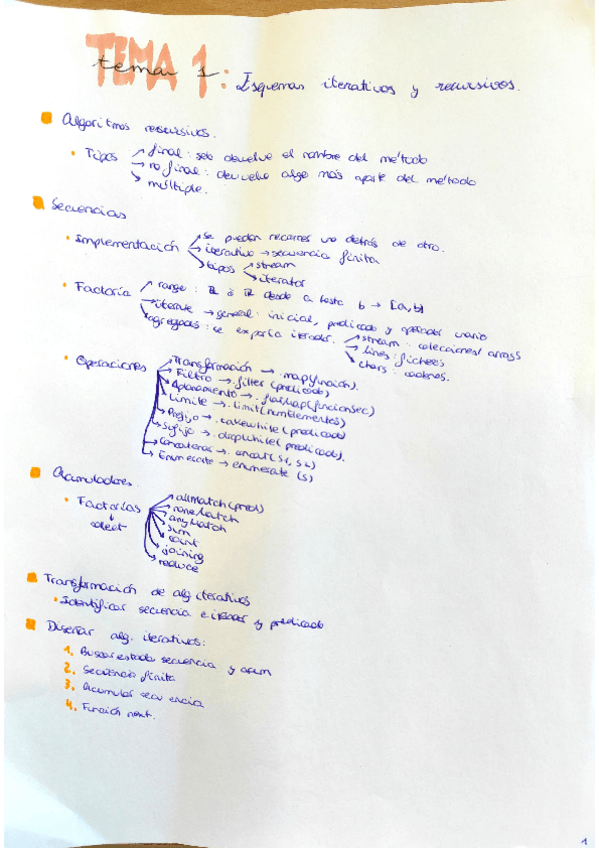 TEMA 1
tema 1: Esquemas iterativos y recursivos.
Algoritmos recursivos.
Tipos
final: solo devuelve el nombre del método
no final: devuelve algo más aparte del método
múltiple.
Secuencias
Implementación
se pueden recorrer uno detrás de otro.
iterativo → secuencia finita
tipos
stream
iterator
Factoría
range: desde a hasta b → [a,b)
iterate → general: inicial, predicado y operador unario
agregados: se exporía iterador.
stream: colecciones/arrays
lines: ficheros
chars: cadenas.
Operaciones
Transformación → .map(función).
Filtro → .filter(predicado)
Aplanamiento → .flatMap(funcionsec)
Límite → .limit(numElementos)
Prefijo → .takewhile(predicado)
Sufijo → .dropWhile(predicado).
Concatenar → .concat(s1, s2)
Enumerate → enumerate (s)
Acumuladores.
Factorías
collect
allMatch(pred)
noneMatch
anyMatch
sum
count
joining
reduce
Transformación de alg iterativos
Identificar secuencia e y predicado
Diseñar alg. iterativos:
1. Buscar estado secuencia y acum
2. Secuencia finita
3. Acumular secuencia
4. Función next.
1